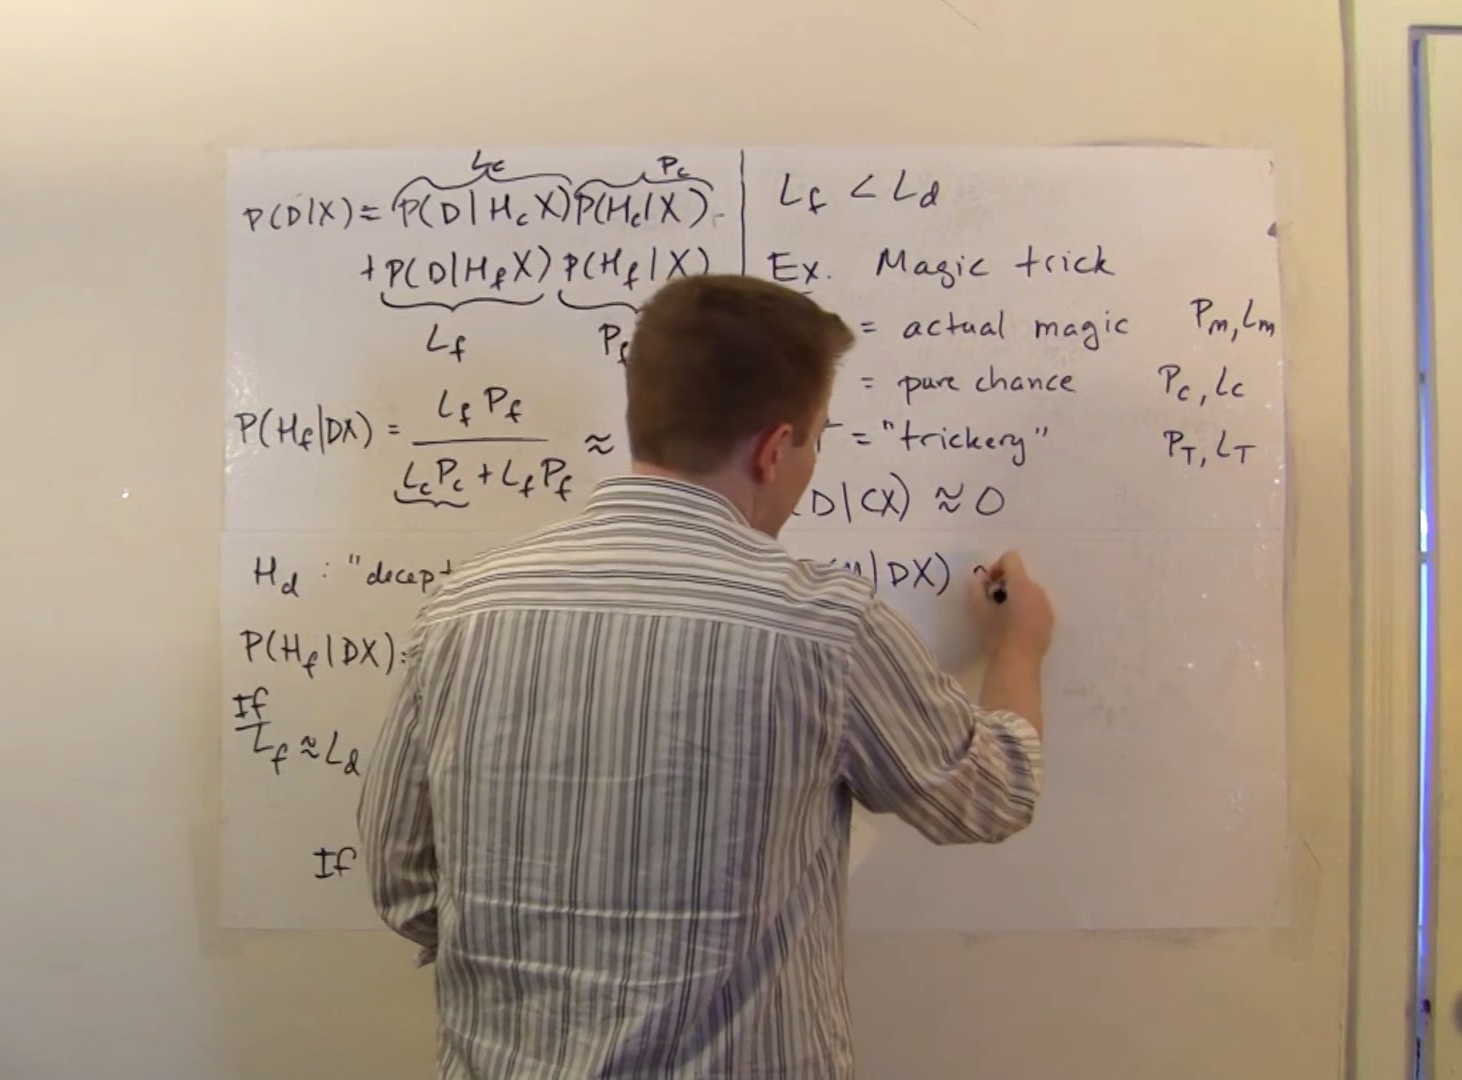 Lc Pc
P(D|X) = P(D|HcX)P(Hc|X)
+ P(D|HfX) P(Hf|X)
Lf Pf
P(Hf|DX) = Lf Pf / LcPc + LfPf ≈
Hd : "decept
P(Hf|DX) =
If
Lf ≈ Ld
If
Lf < Ld
Ex. Magic trick
= actual magic Pm, Lm
= pure chance Pc, Lc
T = "trickery" PT, LT
(D|CX) ≈ 0
(M|DX) ~